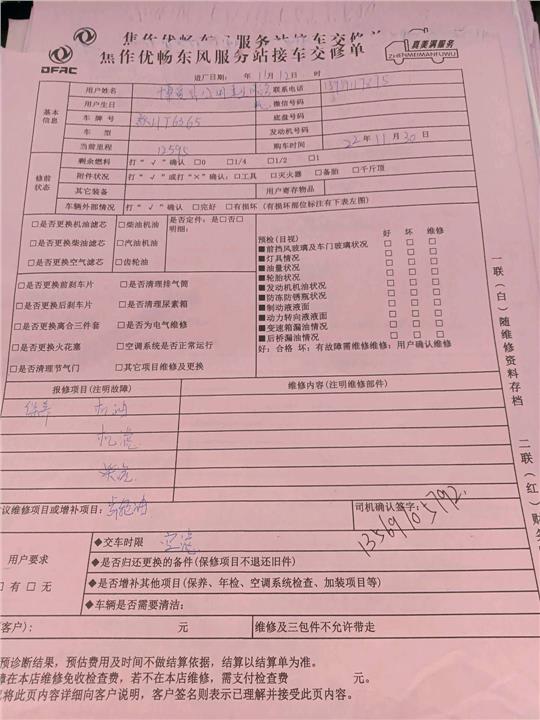 焦作优畅东风服务站接车交修单
DFAC
焦作优畅东风服务站接车交修单
真美满服务
ZHENMEIMANFUWU
进厂日期： 年 11月12日 时
基本信息
用户姓名 联系电话
用户生日 微信号码
车牌号 HT6365 底盘号
车型 发动机号码
当前里程 12595 购车时间 22年11月30日
修前状态
剩余燃料 打“√”确认 □0 □1/4 □1/2 □1
附件状况 打“√”或打“×”确认：□工具 □灭火器 □备胎 □千斤顶
其它装备 用户寄存物品
车辆外部情况 打“√”确认 □完好 □有损坏（有损坏部位标注有下表左图）
□是否更换机油滤芯 □柴油机油 是否定件：是□否□
明细：
□是否更换柴油滤芯 □汽油机油
□是否更换空气滤芯 □齿轮油
□是否更换前刹车片 □是否清理排气筒
□是否更换后刹车片 □是否清理尿素箱
□是否更换离合三件套 □是否为电气维修
□是否更换火花塞 □空调系统是否正常运行
□是否清理节气门 □其它项目维修及更换
预检（目视） 好 坏 维修
■前挡风玻璃及车门玻璃状况 □ □ □
■灯具情况 □ □ □
■油量状况 □ □ □
■轮胎状况 □ □ □
■发动机机油状况 □ □ □
■防冻防锈瓶状况 □ □ □
■制动液液面 □ □ □
■动力转向液液面 □ □ □
■变速箱漏油情况 □ □ □
■后桥漏油情况 □ □ □
好：合格 坏：有故障需维修维修：用户确认维修
报修项目（注明故障） 维修内容（注明维修部件）
保养 机油
机滤
柴滤
议维修项目或增补项目： 司机确认签字：
13569105792
空滤
用户要求
□有 □无
◆交车时限
◆是否归还更换的备件（保修项目不退还旧件）
◆是否增补其他项目（保养、年检、空调系统检查、加装项目等）
◆车辆是否需要清洁：
客户）： 元 维修及三包件不允许带走
预诊断结果，预估费用及时间不做结算依据，结算以结算单为准。
障在本店维修免收检查费，若不在本店维修，需支付检查费 元。
已将此页内容详细向客户说明，客户签名则表示已理解并接受此页内容。
一联（白）随维修资料存档
二联（红）财务